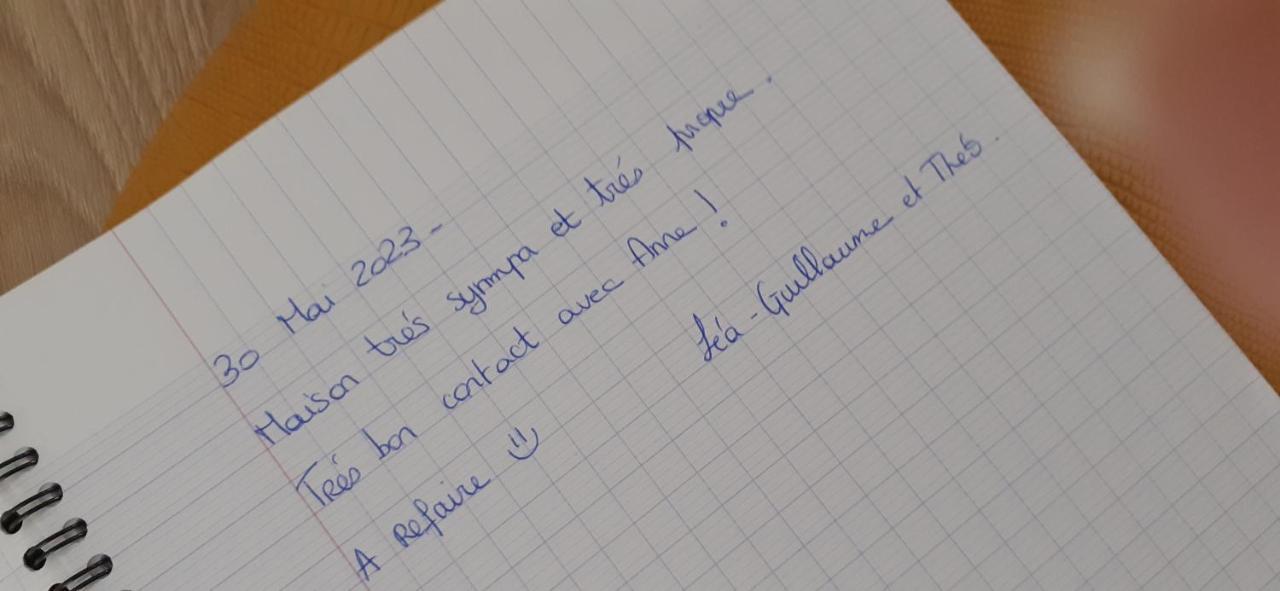 30 Mai 2023-
Maison trés sympa et trés pique.
Trés bon contact avec Anne !
A Refaire =)
Léa - Guillaume et Théo.